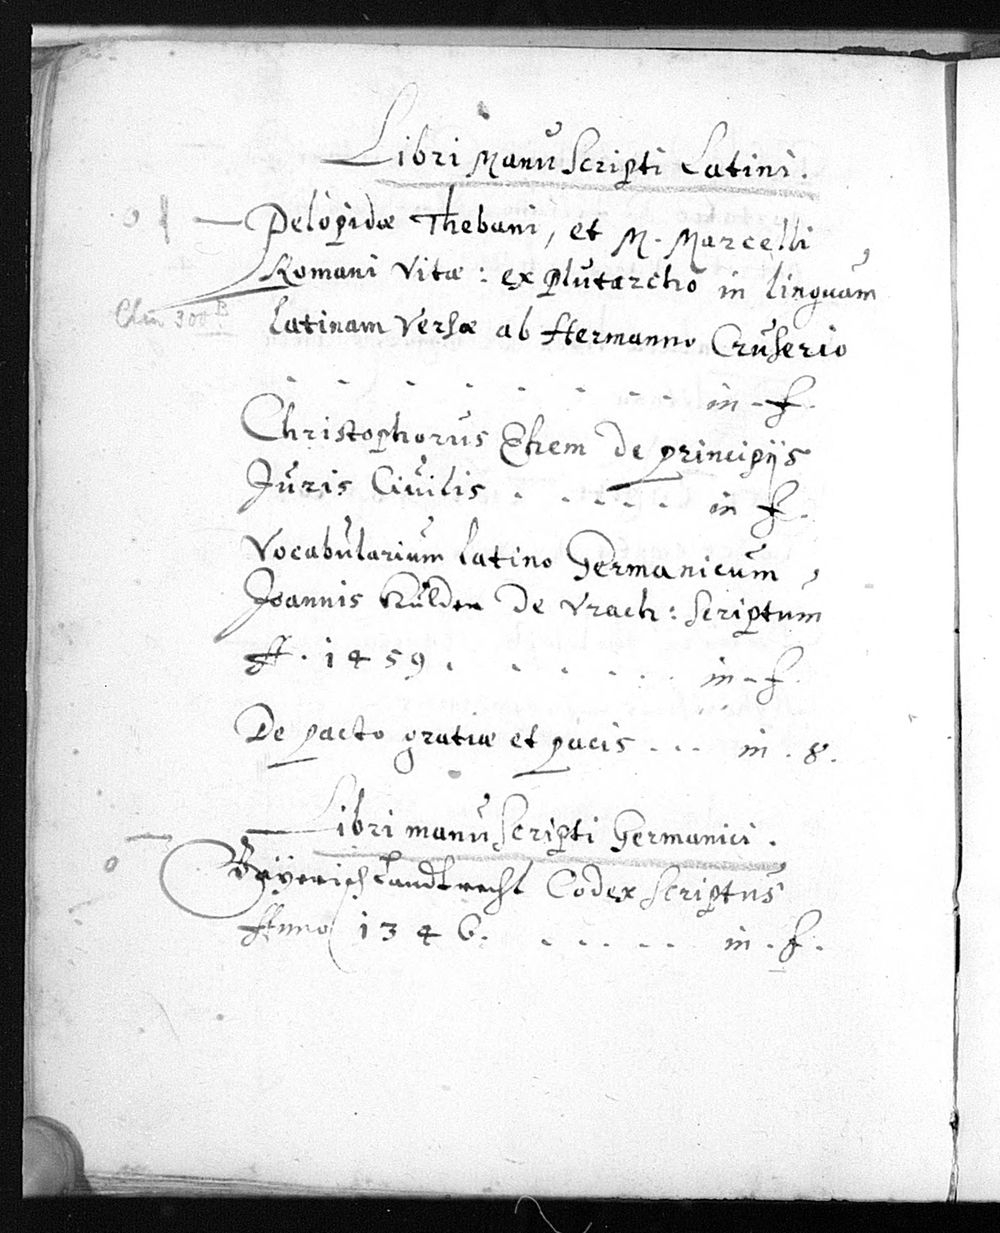 Libri Manuscripti Latini.
Pelopidæ Thebani, et M. Marcelli
Romani Vitæ: ex Plutarcho in linguam
Clm 300 B
latinam Versæ ab Hermanno Cruserio
. . . . . . . . in-f.
Christophorus Ehem de principijs
Juris Ciuilis . . . . . . in f.
Vocabularium latino Germanicum,
Joannis de Vrach: scriptum
A. 1459. . . . . . . in-f.
De pacto gratiæ et pacis . . . in . 8.
Libri manuscripti Germanici.
Bayerisch Landtrecht Codex scriptus
Anno 1346. . . . . . in . f.